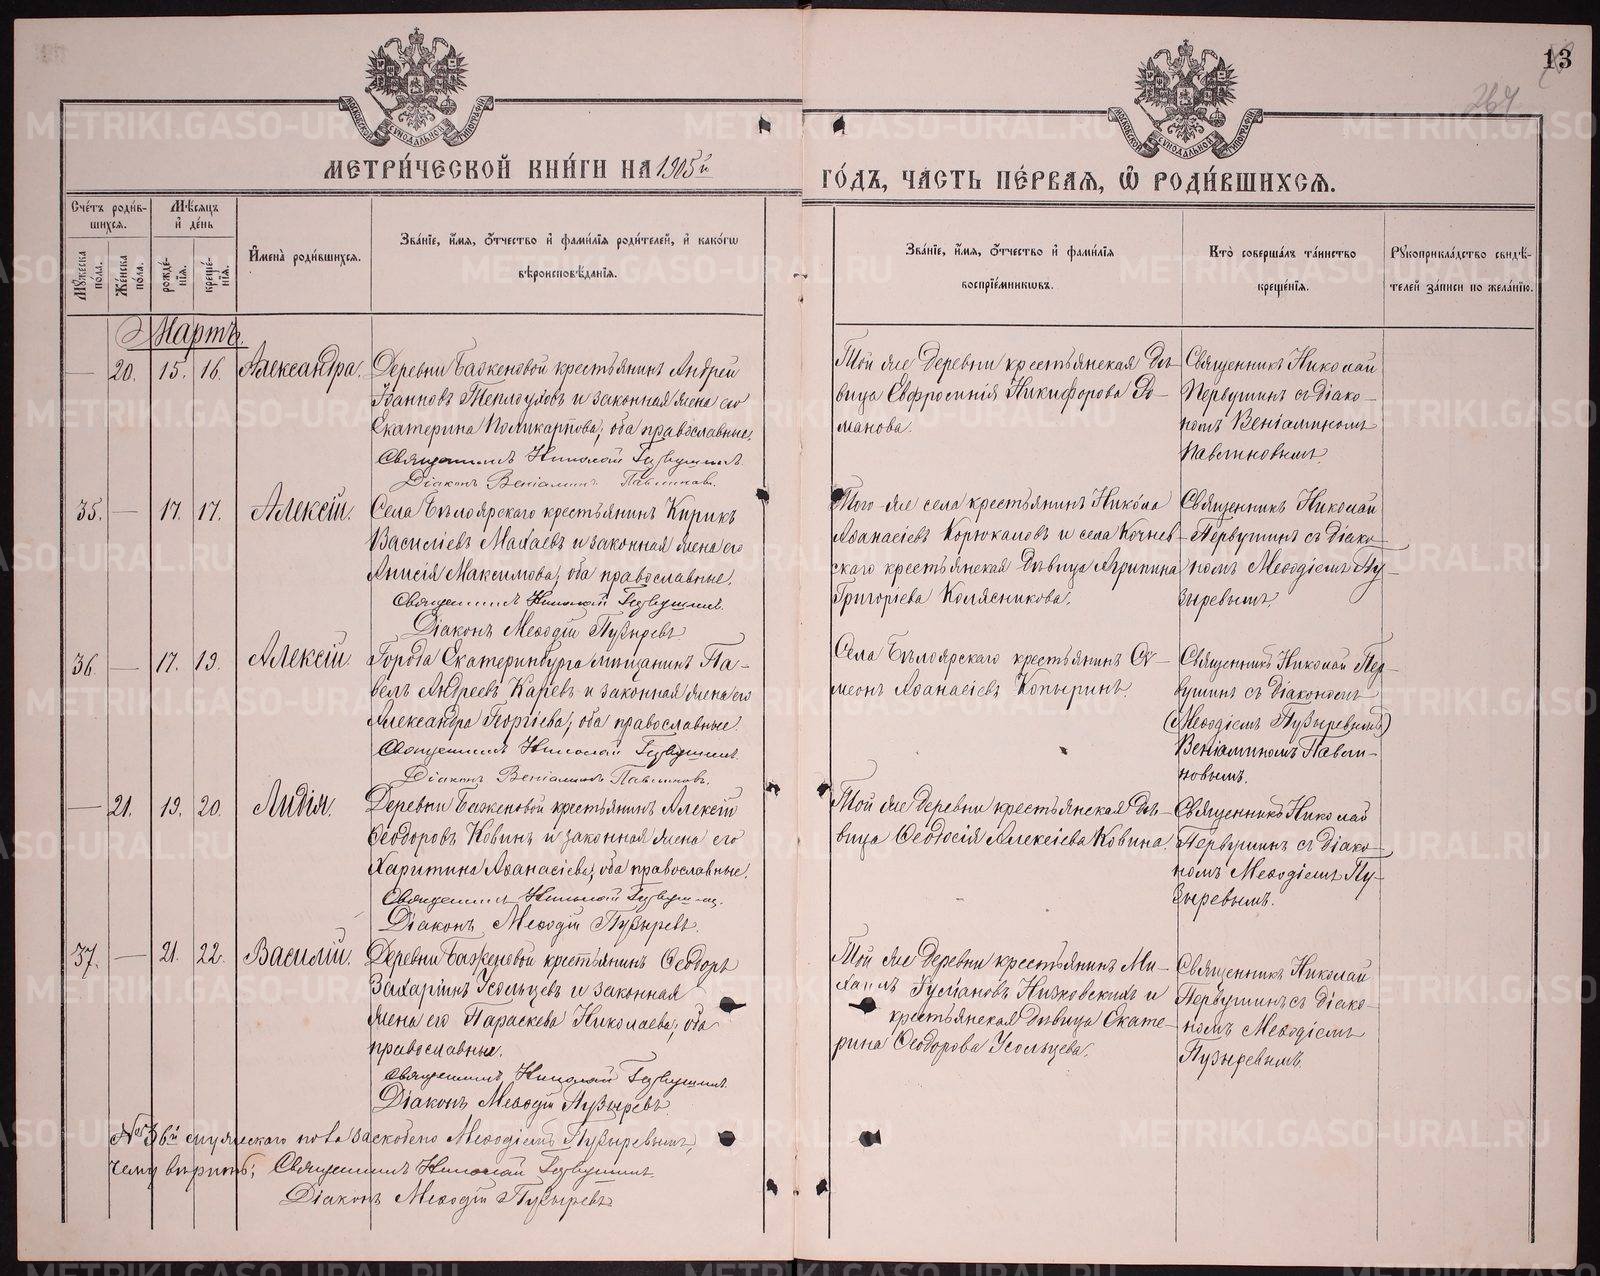 13
264
МОСКОВСКОЙ СѴНОДАЛЬНОЙ ТИПОГРАФІИ
МОСКОВСКОЙ СѴНОДАЛЬНОЙ ТИПОГРАФІИ
МЕТРИ́ЧЕСКОЙ КНИ́ГИ НА 1905й
ГО́ДЪ, ЧА́СТЬ ПЕ́РВАЯ, Ѡ҆ РОДИ́ВШИХСЯ.
Сче́тъ роди́в-
шихся.
Мѣ́сяцъ
и҆ де́нь
Му́жеска
по́ла.
Же́нска
по́ла.
рожде́-
нїя.
креще́-
нїя.
И҆мена̀ роди́вшихся.
Зва́нїе, и҆́мя, ѻ҆́тчество и҆ фами́лїя роди́телей, и҆ како́гѡ
вѣроисповѣ́данїя.
Зва́нїе, и҆́мя, ѻ҆́тчество и҆ фами́лїя
воспрїе́мникѡвъ.
Кто̀ соверша́лъ та́инство
креще́нїя.
Рꙋкоприкла́дство свидѣ́-
телей за́писи по жела́нїю.
Мартъ.
— 20. 15. 16. Александра. Деревни Баженовой крестьянинъ Андрей
Іоанновъ Теплоуховъ и законная жена его
Екатерина Поликарпова, оба православные.
Священникъ Николай Первушинъ.
Діаконъ Веніаминъ Павлиновъ.
Той же деревни крестьянская дѣ-
вица Евфросинія Никифорова Ро-
манова.
Священникъ Николай
Первушинъ съ діако-
номъ Веніаминомъ
Павлиновымъ.
35. — 17. 17. Алексій. Села Бѣлоярскаго крестьянинъ Кирикъ
Василіевъ Махаевъ и законная жена его
Анисія Максимова, оба православные.
Священникъ Николай Первушинъ.
Діаконъ Меѳодій Пузыревъ.
Того-же села крестьянинъ Никола
Аѳанасіевъ Корюкаловъ и села Кочнев-
скаго крестьянская дѣвица Агрипина
Григорьева Колясникова.
Священникъ Николай
Первушинъ съ діако-
номъ Меѳодіемъ Пу-
зыревымъ.
36. — 17. 19. Алексій. Города Екатеринбурга мѣщанинъ Па-
велъ Андреевъ Каревъ и законная жена его
Александра Георгіева, оба православные.
Священникъ Николай Первушинъ.
Діаконъ Веніаминъ Павлиновъ.
Села Бѣлоярскаго крестьянинъ Си-
меонъ Аѳанасіевъ Копыринъ.
Священникъ Николай Пер-
вушинъ съ діакономъ
(Меѳодіемъ Пузыревымъ)
Веніаминомъ Павли-
новымъ.
— 21. 19. 20. Лидія. Деревни Баженовой крестьянинъ Алексій
Ѳеодоровъ Ковинъ и законная жена его
Харитина Аѳанасіева, оба православные.
Священникъ Николай Первушинъ.
Діаконъ Меѳодій Пузыревъ.
Той же деревни крестьянская дѣ-
вица Ѳеодосія Алексіева Ковина.
Священникъ Николай
Первушинъ съ діако-
номъ Меѳодіемъ Пу-
зыревымъ.
37. — 21. 22. Василій. Деревни Баженовой крестьянинъ Ѳеодоръ
Захаріинъ Усольцевъ и законная
жена его Параскева Николаева, оба
православные.
Священникъ Николай Первушинъ.
Діаконъ Меѳодій Пузыревъ.
Той же деревни крестьянинъ Ми-
хаилъ Низковскихъ и
крестьянская дѣвица Екате-
рина Ѳеодорова Усольцева.
Священникъ Николай
Первушинъ съ діако-
номъ Меѳодіемъ
Пузыревымъ.
№ 36й мужескаго пола заскоблено Меѳодіемъ Пузыревымъ,
чему вѣрить; Священникъ Николай Первушинъ.
Діаконъ Меѳодій Пузыревъ.
METRIKI.GASO-URAL.RU